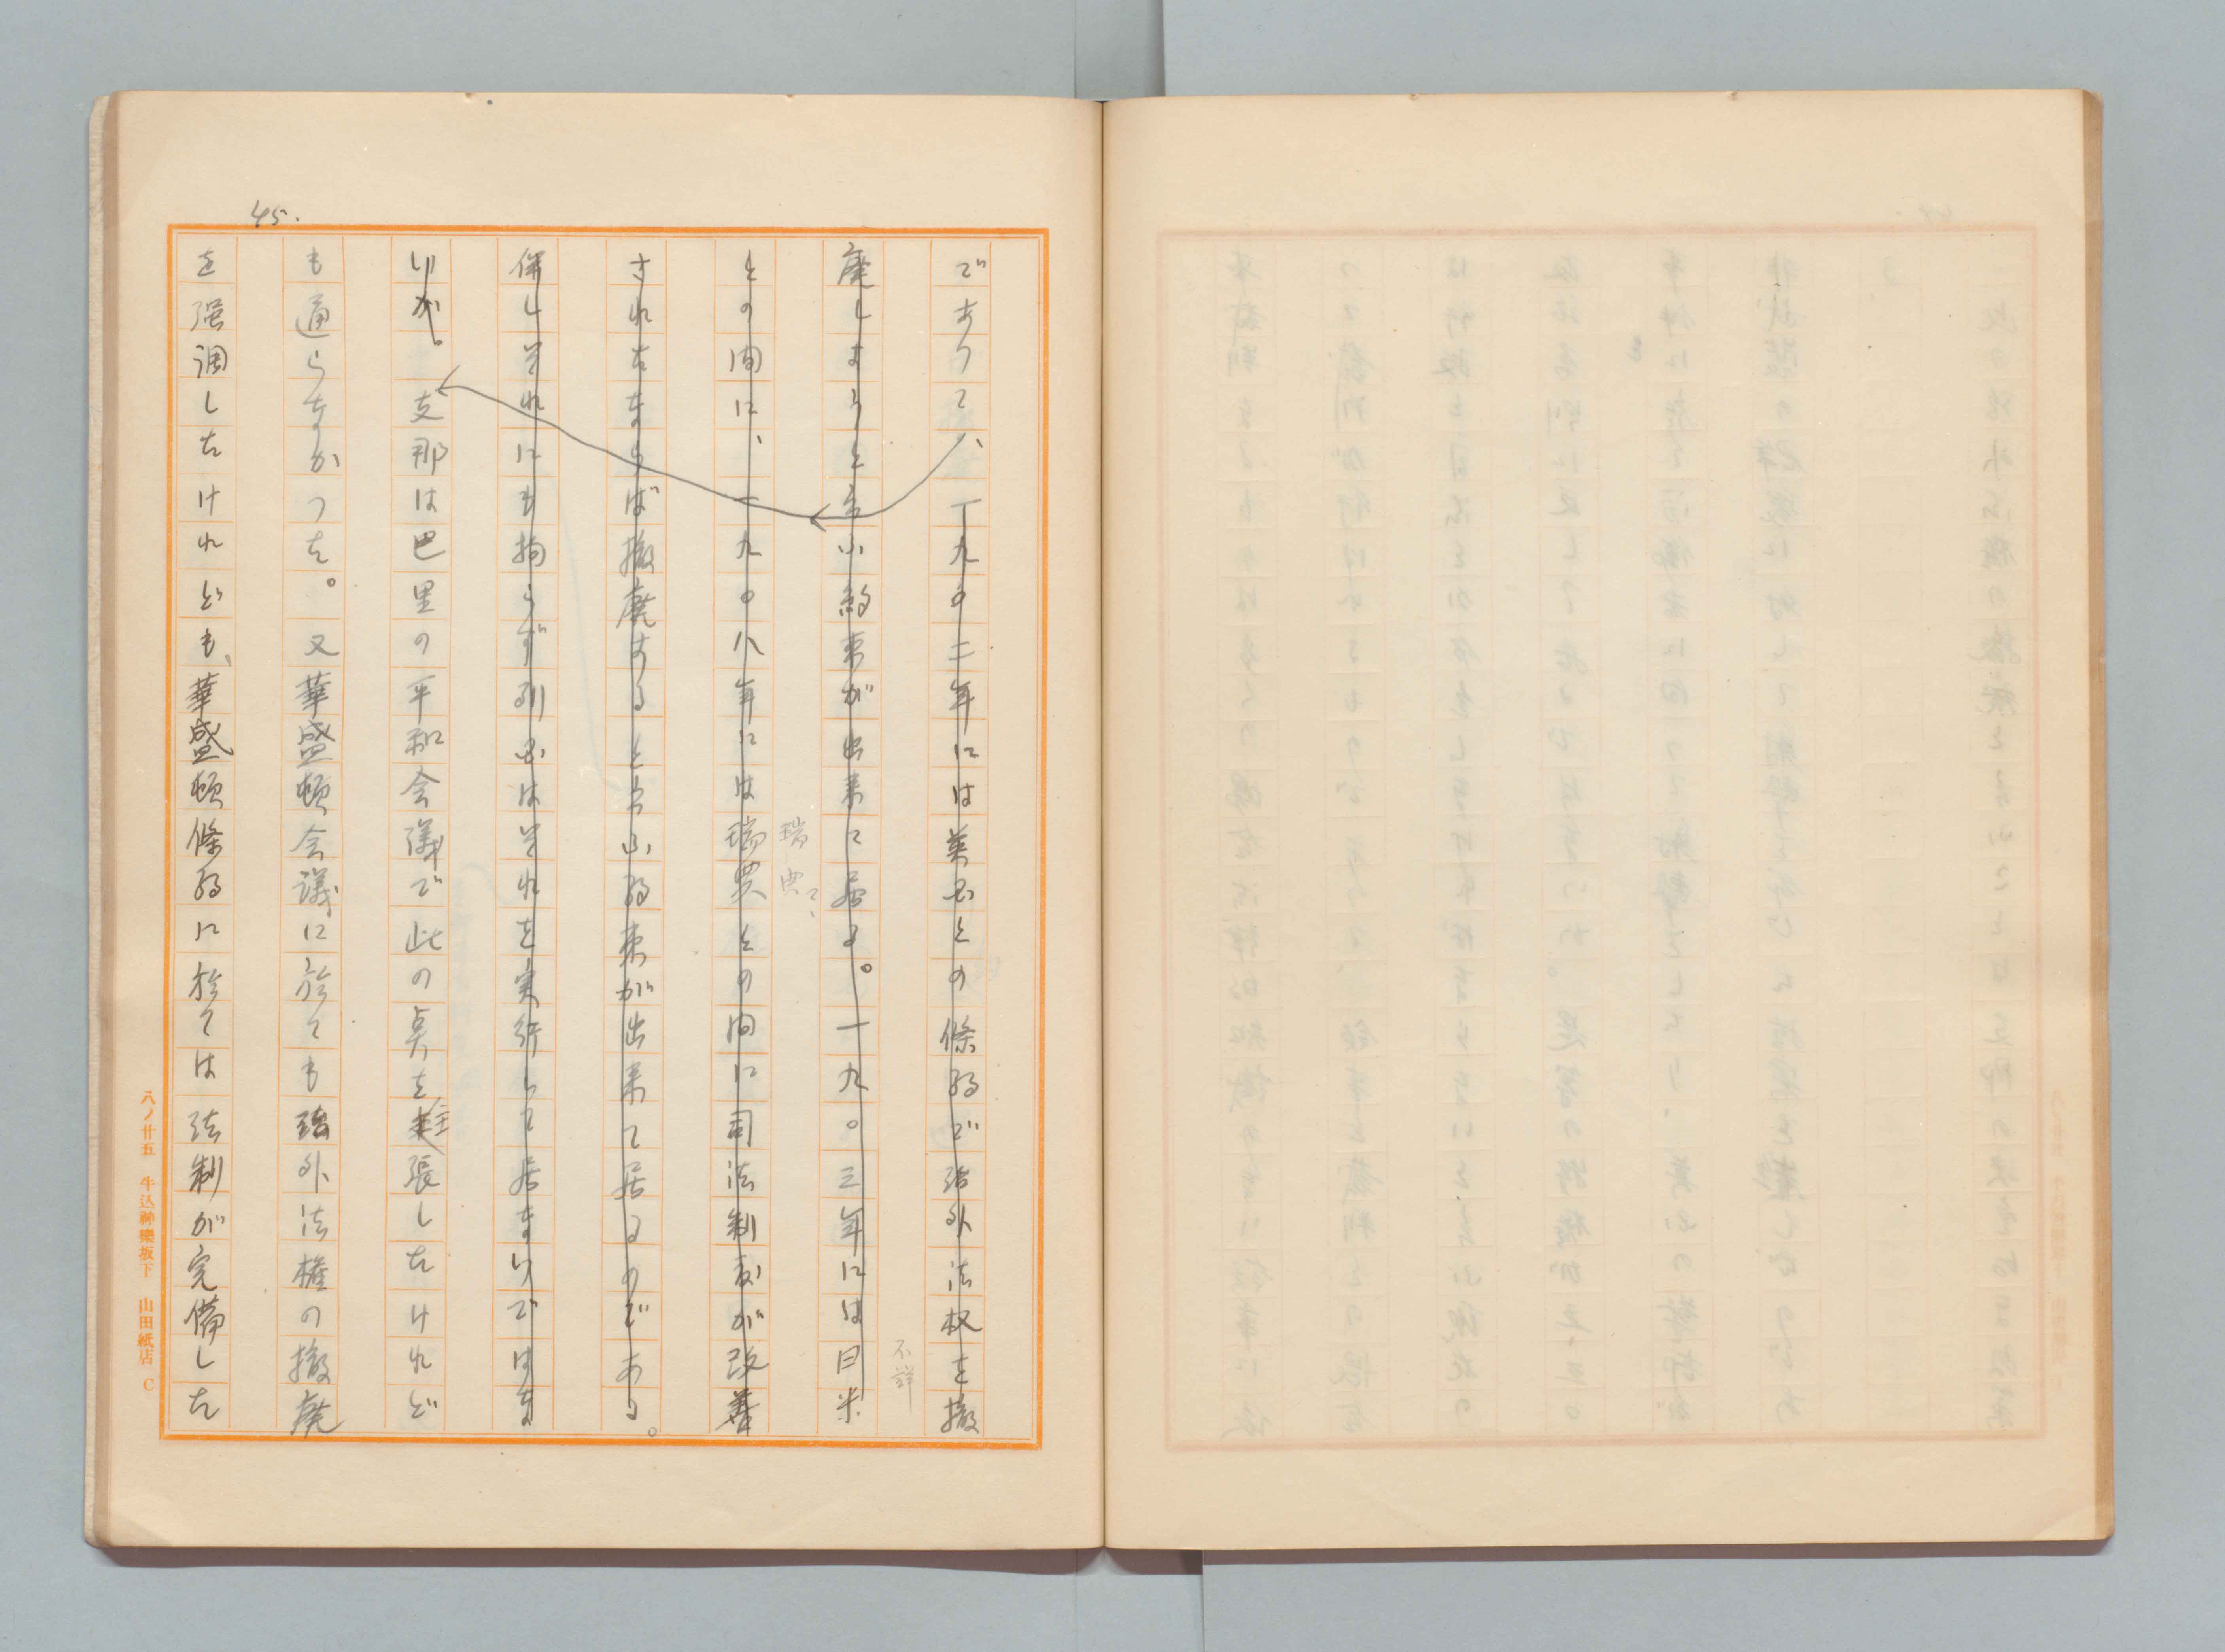 45.
であつて、一九〇二年には英国との條約で治外法权を撤
廃しようと云ふ約束が出来て居る。一九〇三年には日米
不詳
との間に、一九〇八年には瑞典との間に司法制度が改善
瑞典
されたならば撤廃すると云ふ約束が出来て居るのである。
併しそれにも拘らず列国はそれを実行して居ないではな
いか。支那は巴里の平和会議で此の点を主張したけれど
も通らなかつた。又華盛頓会議に於ても治外法権の撤廃
を強調したけれども、華盛頓條約に於ては法制が完備した
八ノ廿五 牛込神樂坂下 山田紙店 C